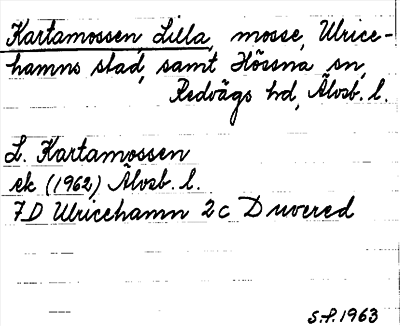 Kartamossen, Lilla, mosse, Ulrice-
hamns stad, samt Hössna sn,
Redvägs hd, Älvsb. l.
L. Kartamossen
ek (1962) Älvsb. l.
7D Ulricehamn 2c Duvered
1963